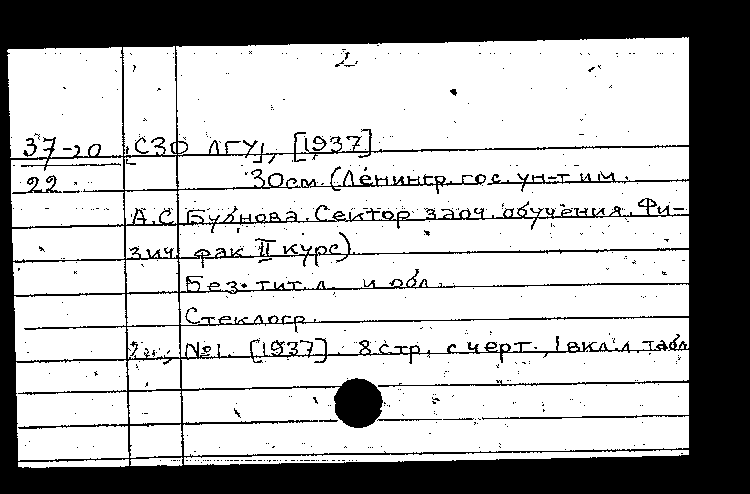 2
37-20 [СЗО ЛГУ], [1937].
22 30см. (Ленингр. гос. ун-т им.
А.С. Бубнова. Сектор заоч. обучения. Фи-
зич. фак. II курс)
Без. тит. л. и обл.
Стеклогр.
№1. [1937]. 8 стр. с черт., 1 вкл. л. табл